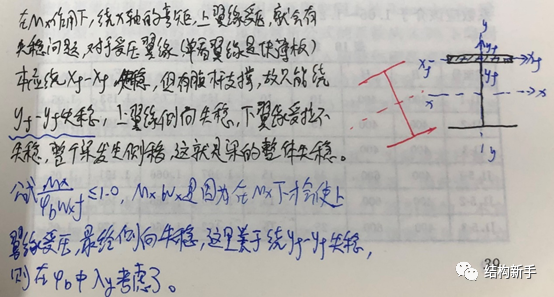 在Mx作用下,绕x轴的弯矩,上翼缘受压,就会有
失稳问题,对于受压翼缘(单看翼缘是块薄板)
本应绕xf-xf失稳,但有腹杆支撑,故只能绕
yf-yf失稳,上翼缘侧向失稳,下翼缘受拉不
失稳,整个梁发生侧移,这就是梁的整体失稳。
公式Mx/φbWxf≤1.0,Mx Wx是因为在Mx下才会使上
翼缘受压,最终侧向失稳,这里关于绕yf-yf失稳,
则在φb中λy考虑了。
y
yf
xf
xf
yf
x
x
y
39
结构新手